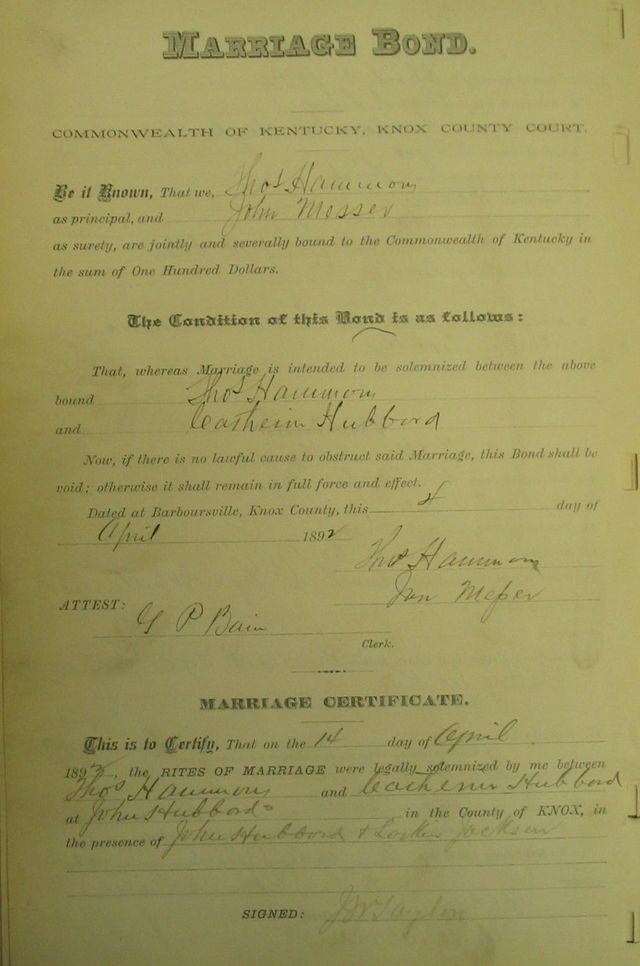 MARRIAGE BOND.
COMMONWEALTH OF KENTUCKY, KNOX COUNTY COURT.
Be it Known, That we, Thos Hammons
as principal, and John Messer
as surety, are jointly and severally bound to the Commonwealth of Kentucky in
the sum of One Hundred Dollars.
The Condition of this Bond is as follows:
That, whereas Marriage is intended to be solemnized between the above
bound Thos Hammons
and Catherin Hubbord
Now, if there is no lawful cause to obstruct said Marriage, this Bond shall be
void; otherwise it shall remain in full force and effect.
Dated at Barboursville, Knox County, this 4 day of
April 1892
Thos Hammons
Messer
ATTEST:
G P Bain
Clerk.
MARRIAGE CERTIFICATE.
This is to Certify, That on the 14 day of April
1892, the RITES OF MARRIAGE were legally solemnized by me between
Thos Hammons and Catherin Hubbord
at John Hubbords in the County of KNOX, in
the presence of John Hubbord & Jackson
SIGNED: Taylor